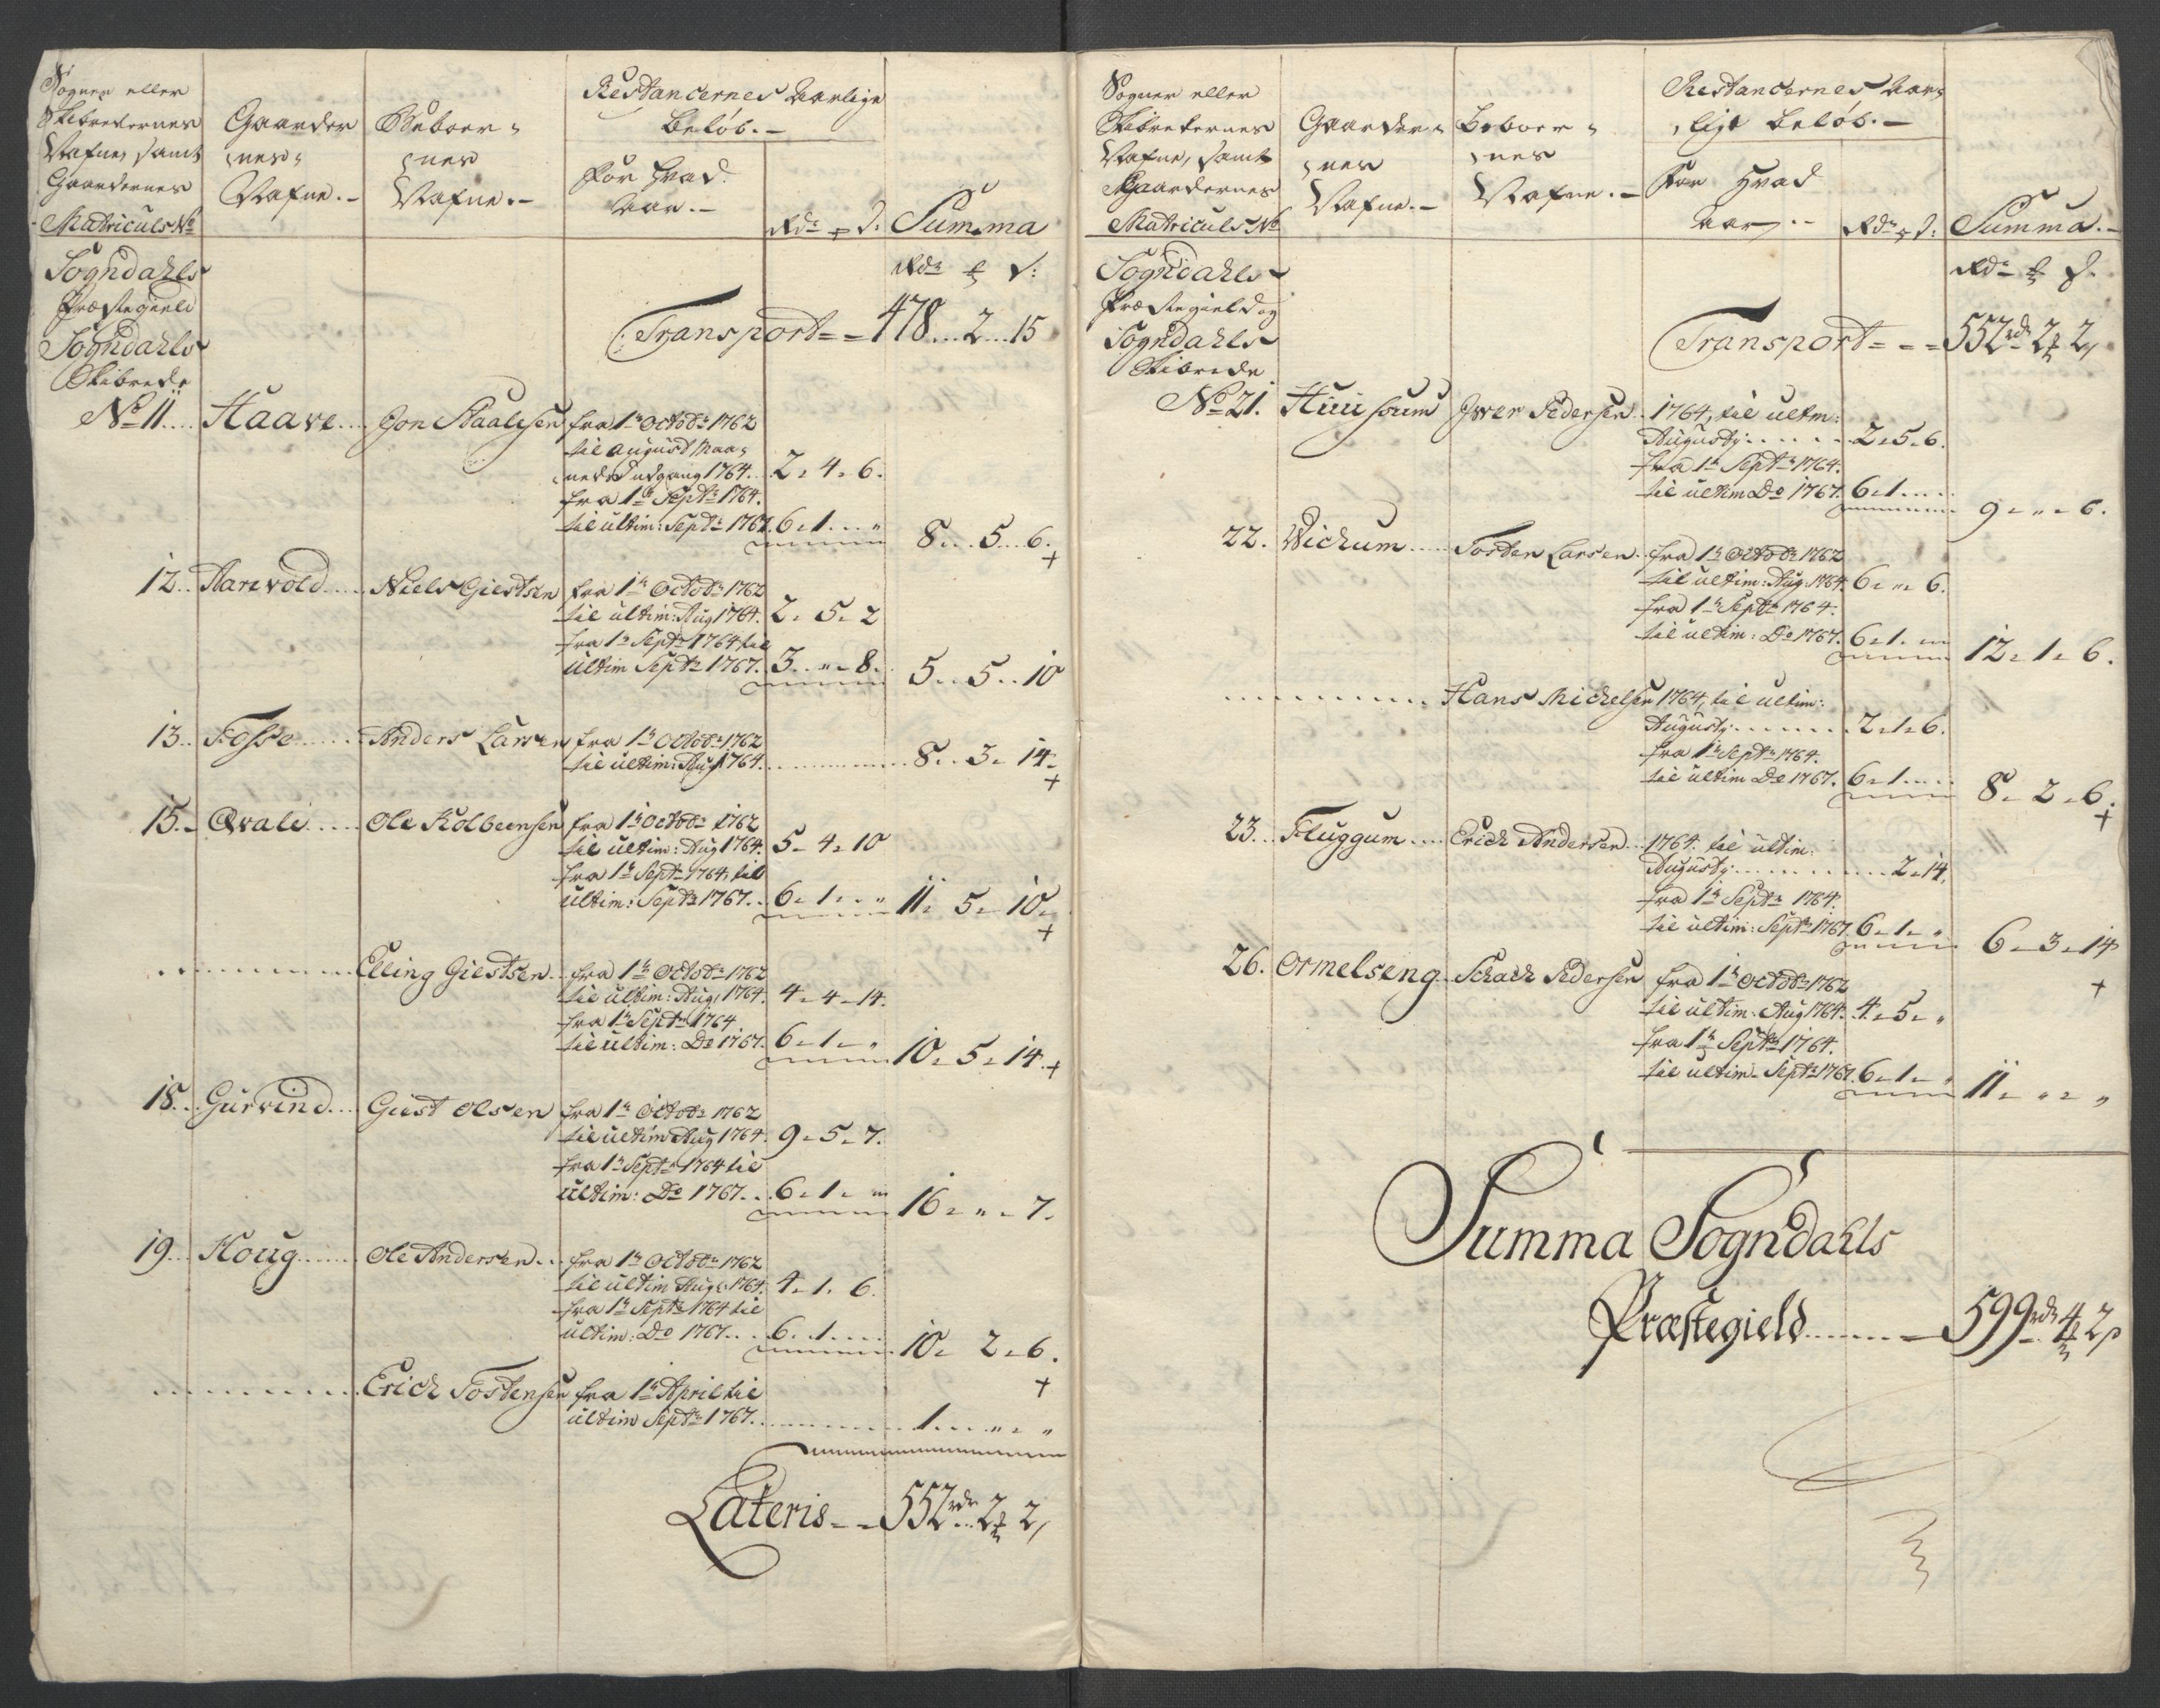 Sogner eller
Skibredernes
Nafne, samt
Gaardernes
Matriculs No
Gaarder
nes
Nafne.
Beboer
nes
Nafne.
Restancernes Aarlige
beløb.
For hvad
Aar.
Rdr ß
Summa
Rdr ß
Sogndahls
Præstegield
Sogndahls
Skibrede
Transport 478 . . 2 . . 15
No 11 . . Haave . . Jon Staalesen fra 1te Octobr 1762
til August Maa
neds udgang 1764 . . 2 . 4 . 6.
fra 1te Septr 1764.
til ultim: Septr 1767. 6 . 1 . . „ 8 . . 5 . . 6.
+
12 . . Aarevold . . Niels Giestsen fra 1te Octobr 1762
til ultim: Aug 1764. 2 . 5 . 2
fra 1te Septr 1764 til
ultim Septr 1767. 3 . „ . 8. 5 . . 5 . . 10
13 . . Fosse . . Anders Larsen fra 1te Octobr 1762
til ultim: Aug 1764. . . 8 . . 3 . 14.
+
15 . . Qvale . . Ole Kolbeensen fra 1te Octobr 1762
til ultim: Aug 1764. 5 . 4 . 10
fra 1te Septr 1764, til
ultim: Septr 1767 . . 6 . 1 . . „ 11 . 5 . 10.
+
. . Elling Giestsen . . fra 1te Octobr 1762
til ultim: Aug, 1764. 4 . 4 . 14.
fra 1te Septr 1764
til ultim: Do 1767. 6 . 1 . „ 10 . 5 . 14. +
18 . . Gurvind . . Giest Olsen fra 1te Octobr 1762
til ultim Aug 1764. 9 . 5 . 7.
fra 1te Septr 1764 til
ultim: Do 1767 . . 6 . 1 . „ 16 . „ . 7.
19 . . Houg . . Ole Andersen . . fra 1te Octobr 1762
til ultim Aug: 1764. 4 . 1 . 6.
fra 1te Septr 1764 til
ultim: Do 1767 . . 6 . 1 . . . 10 . 2 . 6.
+
. . Erich Tostensen fra 1te April til
ultim Septr 1767. . . 1 . . „ . „
Lateris 552 rdr 2 2
Sogner eller
Skibredernes
Nafne, samt
Gaardernes
Matriculs No
Gaarder
nes
Nafne.
Beboer
nes
Nafne.
Restancernes Aar
lige beløb.
For hvad
Aar.
Rdr ß
Summa.
Rdr ß
Sogndahls
Præstegield og
Sogndahls
Skibrede
Transport 552 rdr 2 2
No 21. Huusum Iver Pedersen . . 1764, til ultm:
Augusty . . 2 . 5 . 6.
fra 1te Septr 1764.
til ultim Do 1767. 6 . 1 . . . 9 . „ . 6.
22. Wichum . . Tosten Larsen . . fra 1te Octobr 1762
til ultim: Aug: 1764. 6 . „ . 6.
fra 1te Septr 1764.
til ultim: Do 1767. 6 . 1 . „ 12 . 1 . 6.
. . Hans Michelsen 1764, til ultim:
Augusty . . 2 . 1 . 6.
fra 1te Septr 1764.
til ultim Do 1767. 6 . 1 . . . 8 . 2 . 6.
+
23 . . Fluggum . . Erich Andersen . . 1764. til ultim:
Augusty . . 2 . 14.
fra 1te Septr 1764.
til ultim: Septr 1767. 6 . 1 . „ 6 . 3 . 14
+
26. Ormelseng . . Schach Pedersen fra 1te Octobr 1762
til ultim: Aug 1764. 4 . 5 . „
fra 1te Septr 1764.
til ultim. Septr 1767. 6 . 1 . „ 11 . „ . „
Summa Sogndahls
Præstegield . . 599 rdr 4 2